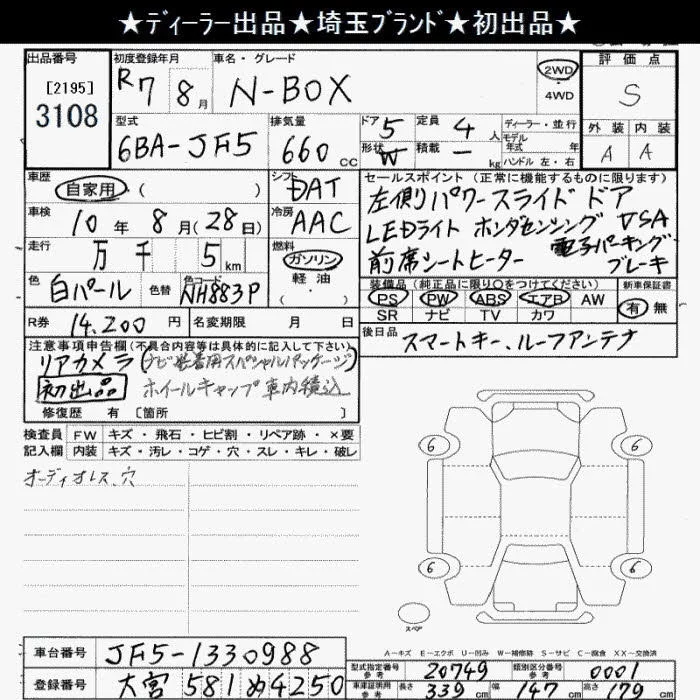 ★ディーラー出品★埼玉ブランド★初出品★
出品番号
[2195]
3108
初度登録年月
R7年 8月
車名・グレード
N-BOX
2WD
・
4WD
評価点
S
型式
6BA-JF5
排気量
660 cc
ドア 5
形状 W
定員 4 人
積載 ー kg
ディーラー・並行
モデル
年式 年
ハンドル 左・右
外装 内装
A A
車歴
自家用・( )
シフト
DAT
セールスポイント(正常に機能するものに限ります)
左側パワースライドドア
LEDライト ホンダセンシング VSA
前席シートヒーター 電子パーキング
ブレーキ
車検
10年 8月(28日)
冷房
AAC
走行
万 千 5 km
燃料
ガソリン
・
軽油
( )
色
白パール
色替
色コード
NH883P
装備品(純正品に限り○をつけてください)
PS PW ABS エアB AW
SR ナビ TV カワ
新車保証書
有 無
R券 14,200 円
名変期限 月 日
後日品
スマートキー、ルーフアンテナ
注意事項申告欄(不具合内容等は具体的に記入して下さい)
リアカメラ (ナビ装着用スペシャルパッケージ)
初出品 ホイールキャップ車内積込
修復歴 有 〔箇所 〕
検査員 FW キズ・飛石・ヒビ割・リペア跡・×要
記入欄 内装 キズ・汚レ・コゲ・穴・スレ・キレ・破レ
オーディオレス、穴
6 6
6 6
スペア
A－キズ E－エクボ U－凹み W－補修跡 S－サビ C－腐食 XX－交換済
車台番号 JF5-1330988
登録番号 大宮 581 め4250
型式指定番号 参考 20749 類別区分番号 参考 0001
車庫証明用 参考 長さ 339 cm 幅 147 cm 高さ 179 cm